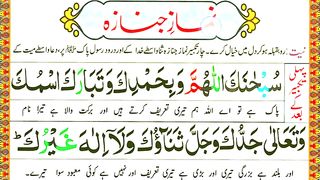 نماز جنازہ
نیت: رو بقبلہ ہو کر دل میں خیال کرے۔ چار تکبیر نماز جنازہ ثناء واسطے خدا کے اور درود رسول پاک ﷺ پر دعا واسطے میت کے
پہلی تکبیر کے بعد
سُبْحٰنَكَ اللّٰهُمَّ وَبِحَمْدِكَ وَتَبَارَكَ اسْمُكَ
پاک ہے تو اے اللہ ہم تیری تعریف کرتے ہیں اور برکت والا ہے تیرا نام
وَتَعَالٰى جَدُّكَ وَجَلَّ ثَنَاؤُكَ وَلَآ اِلٰهَ غَيْرُكَ ؕ
اور بلند ہے بزرگی تیری اور بڑی ہے تعریف تیری اور نہیں ہے کوئی معبود سوا تیرے۔